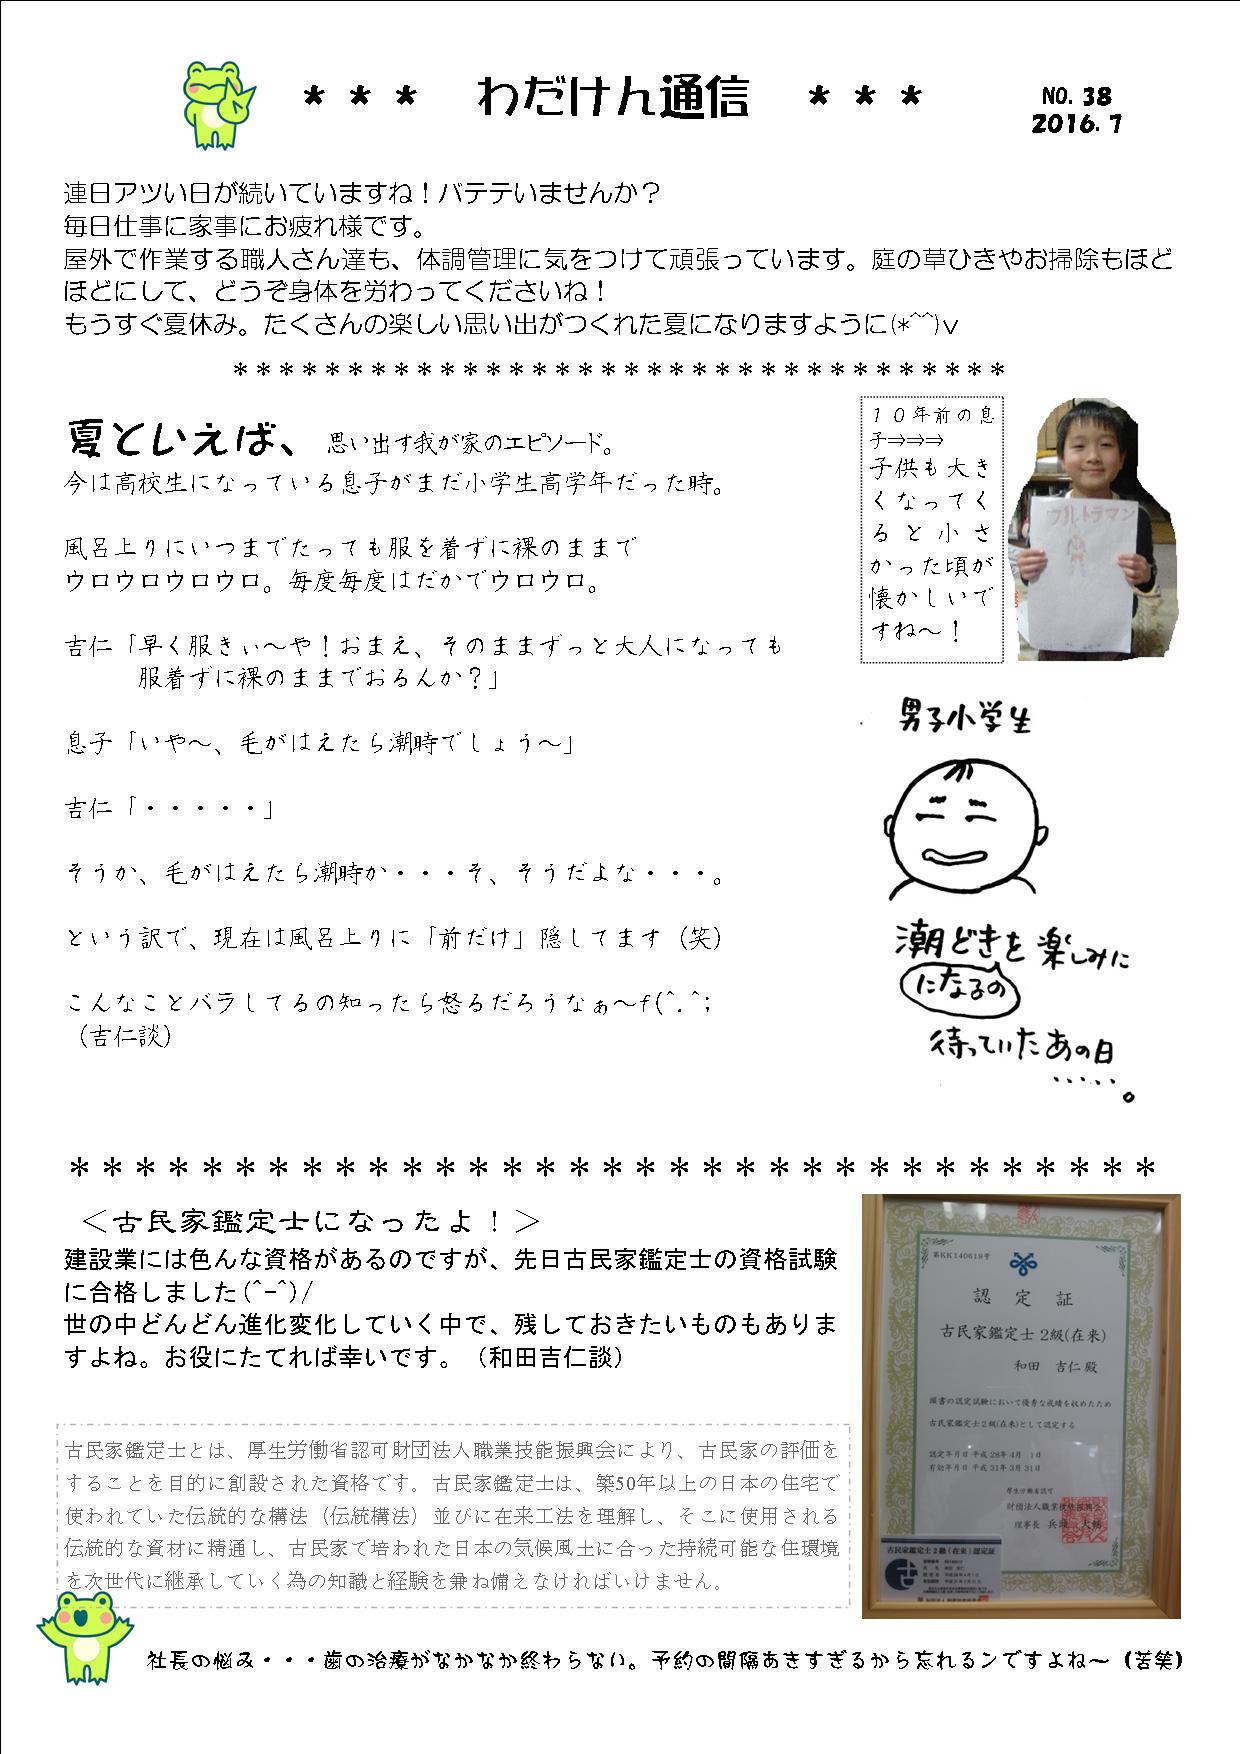 ＊ ＊ ＊　わだけん通信　＊ ＊ ＊
NO. 38
2016. 7
連日アツい日が続いていますね！バテテいませんか？
毎日仕事に家事にお疲れ様です。
屋外で作業する職人さん達も、体調管理に気をつけて頑張っています。庭の草ひきやお掃除もほど
ほどにして、どうぞ身体を労わってくださいね！
もうすぐ夏休み。たくさんの楽しい思い出がつくれた夏になりますように(*^^)v
＊＊＊＊＊＊＊＊＊＊＊＊＊＊＊＊＊＊＊＊＊＊＊＊＊＊＊＊＊＊＊＊＊＊
夏といえば、思い出す我が家のエピソード。
今は高校生になっている息子がまだ小学生高学年だった時。
風呂上りにいつまでたっても服を着ずに裸のままで
ウロウロウロウロ。毎度毎度はだかでウロウロ。
吉仁「早く服きぃ～や！おまえ、そのままずっと大人になっても
服着ずに裸のままでおるんか？」
息子「いや～、毛がはえたら潮時でしょう～」
吉仁「・・・・・」
そうか、毛がはえたら潮時か・・・そ、そうだよな・・・。
という訳で、現在は風呂上りに「前だけ」隠してます（笑）
こんなことバラしてるの知ったら怒るだろうなぁ～f(^.^;
（吉仁談）
１０年前の息
子⇒⇒⇒
子供も大き
くなってく
ると小さ
かった頃が
懐かしいで
すね～！
ウルトラマン
男子小学生
潮どきを楽しみに
になるの
待っていたあの日
・・・・・。
＊＊＊＊＊＊＊＊＊＊＊＊＊＊＊＊＊＊＊＊＊＊＊＊＊＊＊＊＊＊＊＊＊
＜古民家鑑定士になったよ！＞
建設業には色んな資格があるのですが、先日古民家鑑定士の資格試験
に合格しました(^-^)/
世の中どんどん進化変化していく中で、残しておきたいものもありま
すよね。お役にたてれば幸いです。（和田吉仁談）
古民家鑑定士とは、厚生労働省認可財団法人職業技能振興会により、古民家の評価を
することを目的に創設された資格です。古民家鑑定士は、築50年以上の日本の住宅で
使われていた伝統的な構法（伝統構法）並びに在来工法を理解し、そこに使用される
伝統的な資材に精通し、古民家で培われた日本の気候風土に合った持続可能な住環境
を次世代に継承していく為の知識と経験を兼ね備えなければいけません。
第KK140619号
認 定 証
古民家鑑定士2級(在来)
和田 吉仁 殿
頭書の認定試験において優秀な成績を収めたため
古民家鑑定士2級(在来)として認定する
認定年月日 平成28年4月 1日
有効年月日 平成31年3月31日
厚生労働省認可
財団法人職業技能振興会
理事長 兵頭 大輔
古民家鑑定士2級(在来)認定証
社長の悩み・・・歯の治療がなかなか終わらない。予約の間隔あきすぎるから忘れるンですよね～（苦笑）